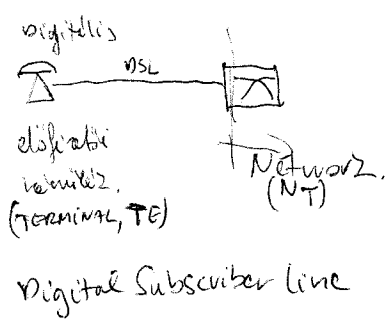 Digitális
DSL
előfizetői
készülék.
(TERMINAL, TE)
Network.
(NT)
Digital Subscriber Line